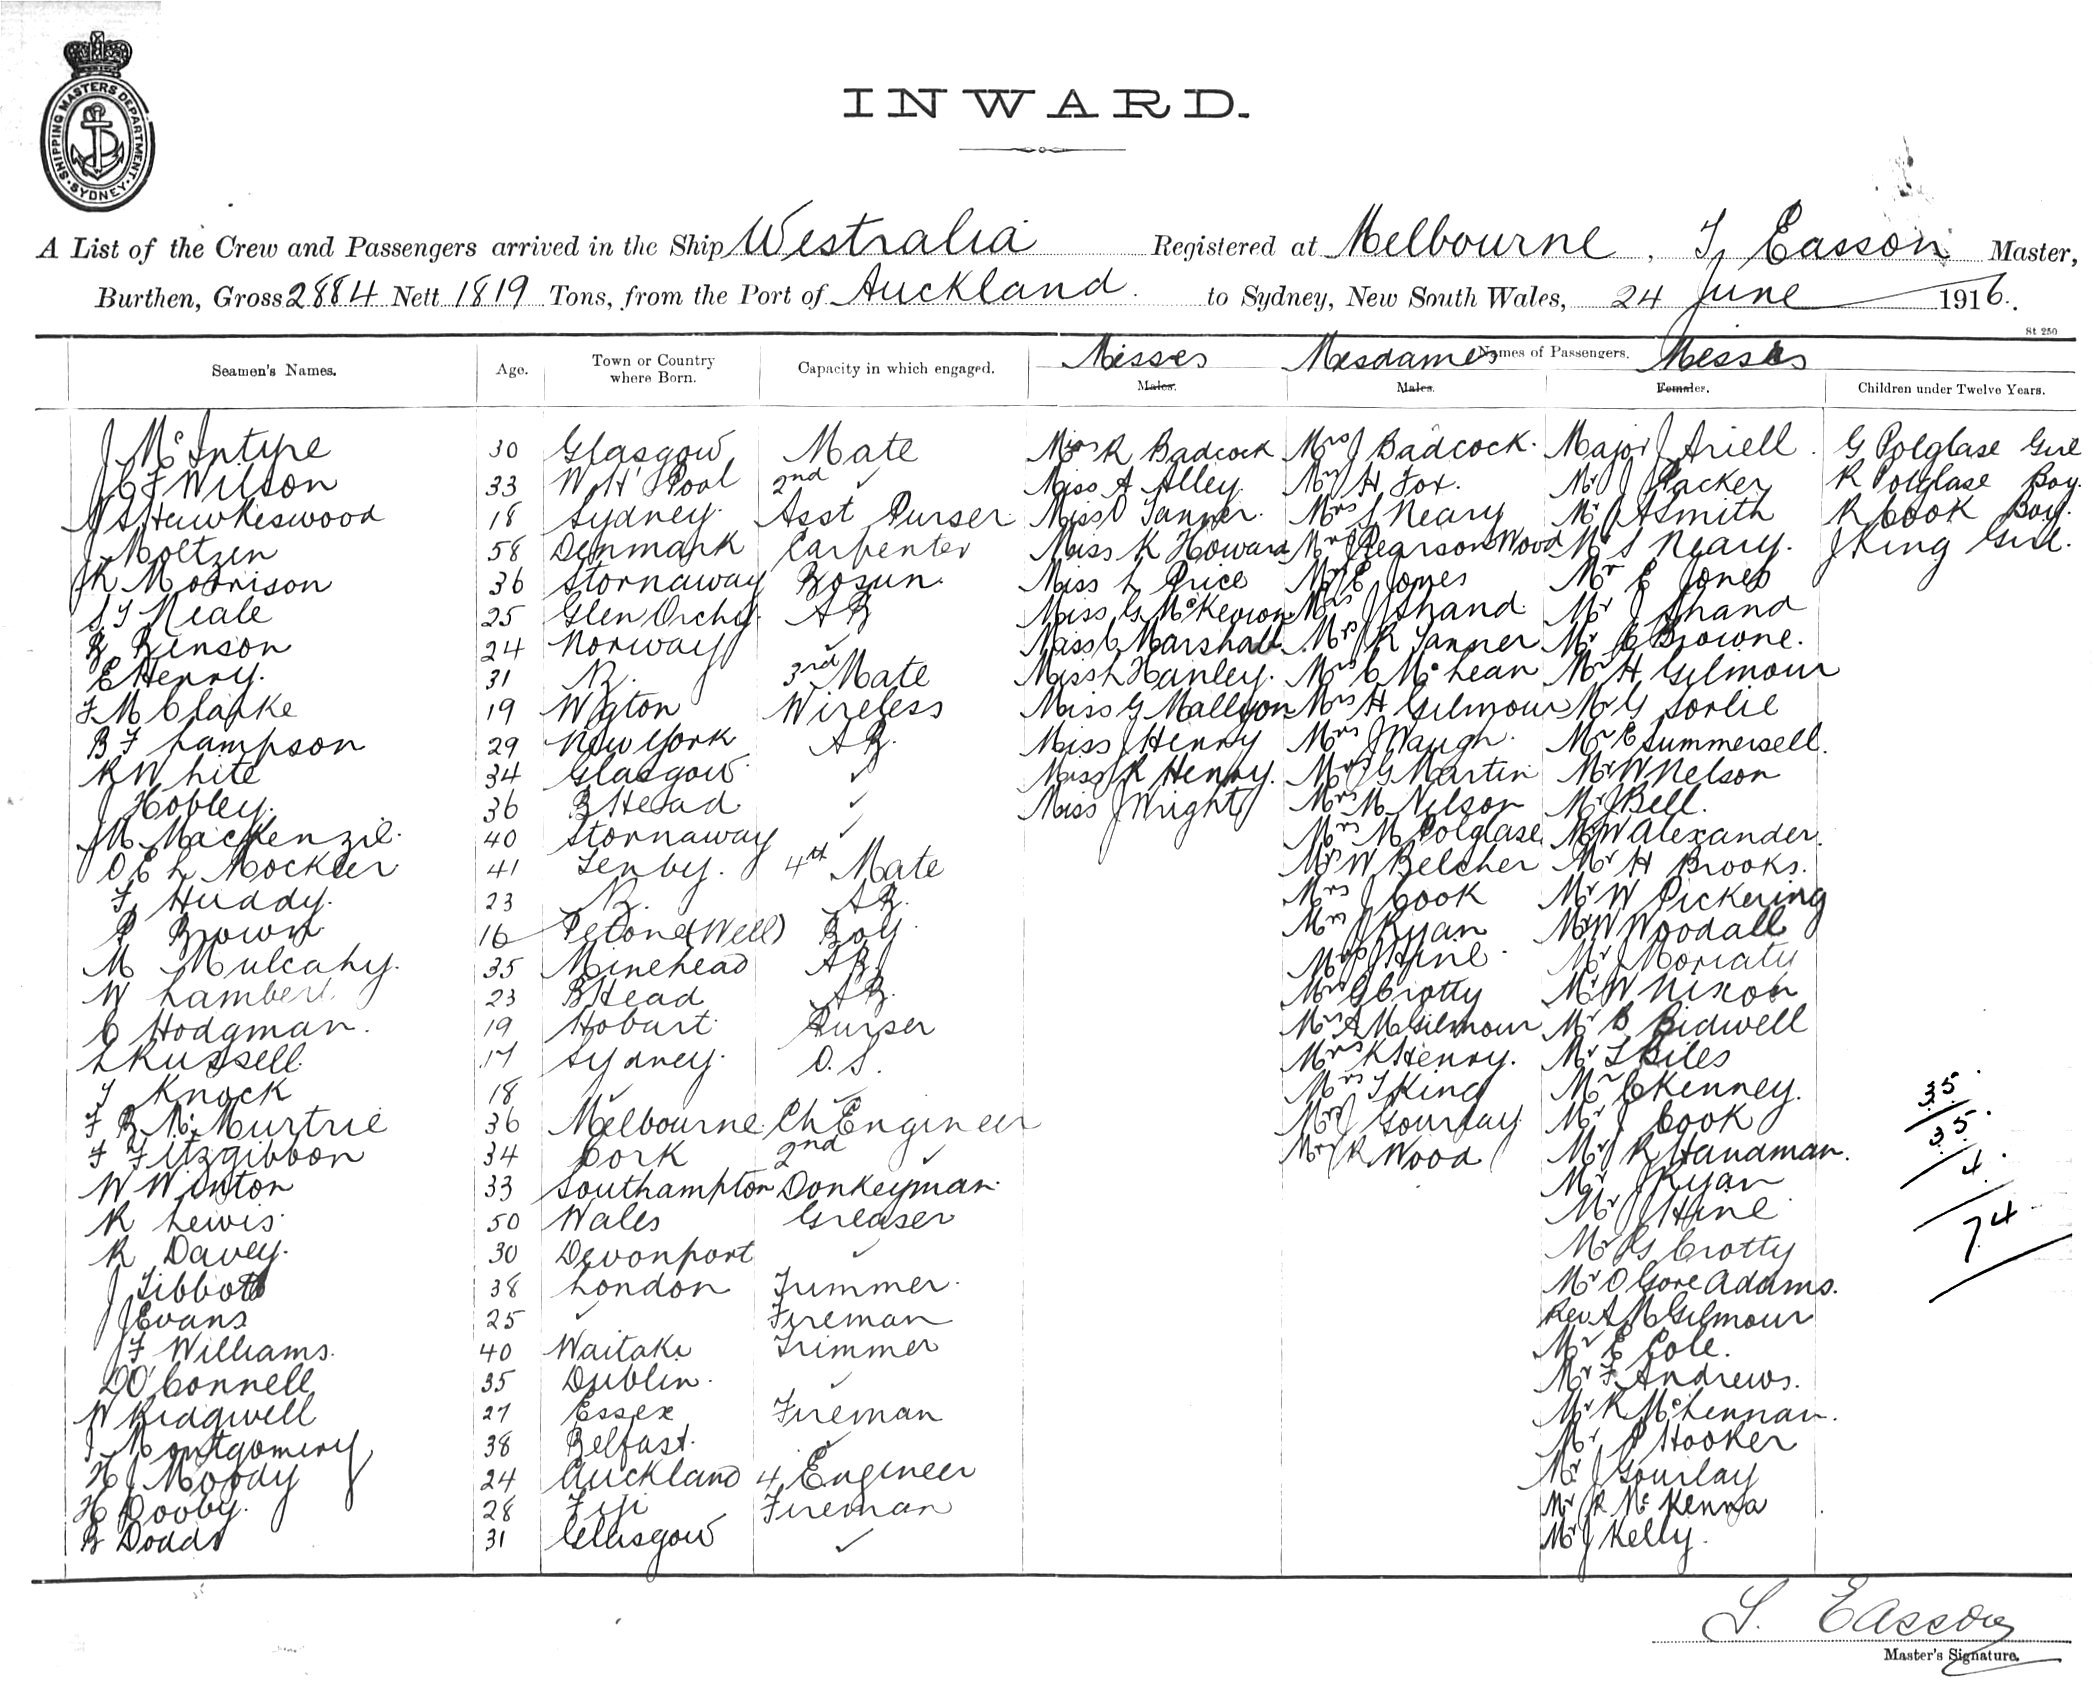 SHIPPING MASTERS DEPARTMENT. SYDNEY
INWARD.
A List of the Crew and Passengers arrived in the Ship Westralia Registered at Melbourne, T. Easson Master,
Burthen, Gross 2884 Nett 1819 Tons, from the Port of Auckland. to Sydney, New South Wales, 24 June 1916.
St 250
Seamen's Names. Age. Town or Country where Born. Capacity in which engaged. Names of Passengers.
Misses Mesdames Messrs
Males. Males. Females. Children under Twelve Years.
J McIntyre 30 Glasgow Mate Miss R Badcock Mrs J Badcock. Major J Ariell. G Polglase Girl
J C F Wilson 33 W. H'Pool 2nd ✓ Miss A Alley Mrs H Fox. Mr J Packer R Polglase Boy.
J S Hawkeswood 18 Sydney. Asst Purser Miss D Tanner. Mrs S Neary Mr J A Smith R Cook Boy.
J. Moltzen 58 Denmark Carpenter Miss K Howard Mrs J Pearson Wood Mr S Neary. J King Girl.
K Morrison 36 Stornaway Bosun. Miss L Price Mrs E Jones Mr E Jones
S T Neale 25 Glen Orchy. AB Miss G McKeown Mrs J Shand. Mr J Shand
B Benson 24 Norway ✓ Miss C Marshall Mrs R Tanner Mr C Browne.
E Henry. 31 B. 3rd Mate Miss L Hanley. Mrs C McLean Mr H Gilmour
F M Clarke 19 Wgton Wireless Miss G Mallyon Mrs H Gilmour Mr G Sorlie
B F Lampson 29 New York AB. Miss J Henry Mrs J Waugh. Mr E Summersell.
R White 34 Glasgow ✓ Miss R Henry. Mrs G Martin Mr W Nelson
J Hobley. 36 B Head ✓ Miss J Wright Mrs M Nelson Mr J Bell.
M MacKenzie. 40 Stornaway ✓ Mrs M Polglase Mr W Alexander.
O E L Mockler 41 Tenby. 4th Mate Mrs W Belcher Mr H Brooks.
F Huddy. 23 B. AB. Mrs J Cook Mr W Pickering
P Brown 16 Petone (Well) Boy. Mrs J Ryan Mr W Woodall
M Mulcahy. 35 Minehead AB. Mrs J Hine. Mr J Moriaty
W Lambert 23 B Head AB. Mrs G Crotty Mr W Nixon
C Hodgman. 19 Hobart Purser Mrs A M Gilmour Mr B Bidwell
L Russell. 17 Sydney. O.S. Mrs K Henry. Mr L Biles
J Knock 18 ✓ ✓ Mrs T King Mr C Kenney.
F B McMurtrie 36 Melbourne Ch Engineer Mrs J Gourlay Mr J Cook
F Fitzgibbon 34 Cork 2nd ✓ Mrs R Wood Mr R Handman.
W Winton 33 Southampton Donkeyman. Mr J Ryan
R Lewis. 50 Wales Greaser Mr J Hine
R Davey. 30 Devonport ✓ Mr G Crotty
J Tibbott 38 London Trimmer. Mr O Gore Adams.
J Evans 25 ✓ Fireman Rev A M Gilmour
J F Williams. 40 Waitaki Trimmer Mr E Cole.
D O'Connell 35 Dublin. ✓ Mr F Andrews.
W Ridgwell 27 Essex Fireman Mr R McLennan.
J Montgomery 38 Belfast. ✓ Mr P Hooker
H J Moody 24 Auckland 4 Engineer Mr J Gourlay
H Dooby. 28 Fiji Fireman Mr R McKenna
B Dodds 31 Glasgow ✓ Mr J Kelly.
35
35
4
74
T. Easson
Master's Signature.